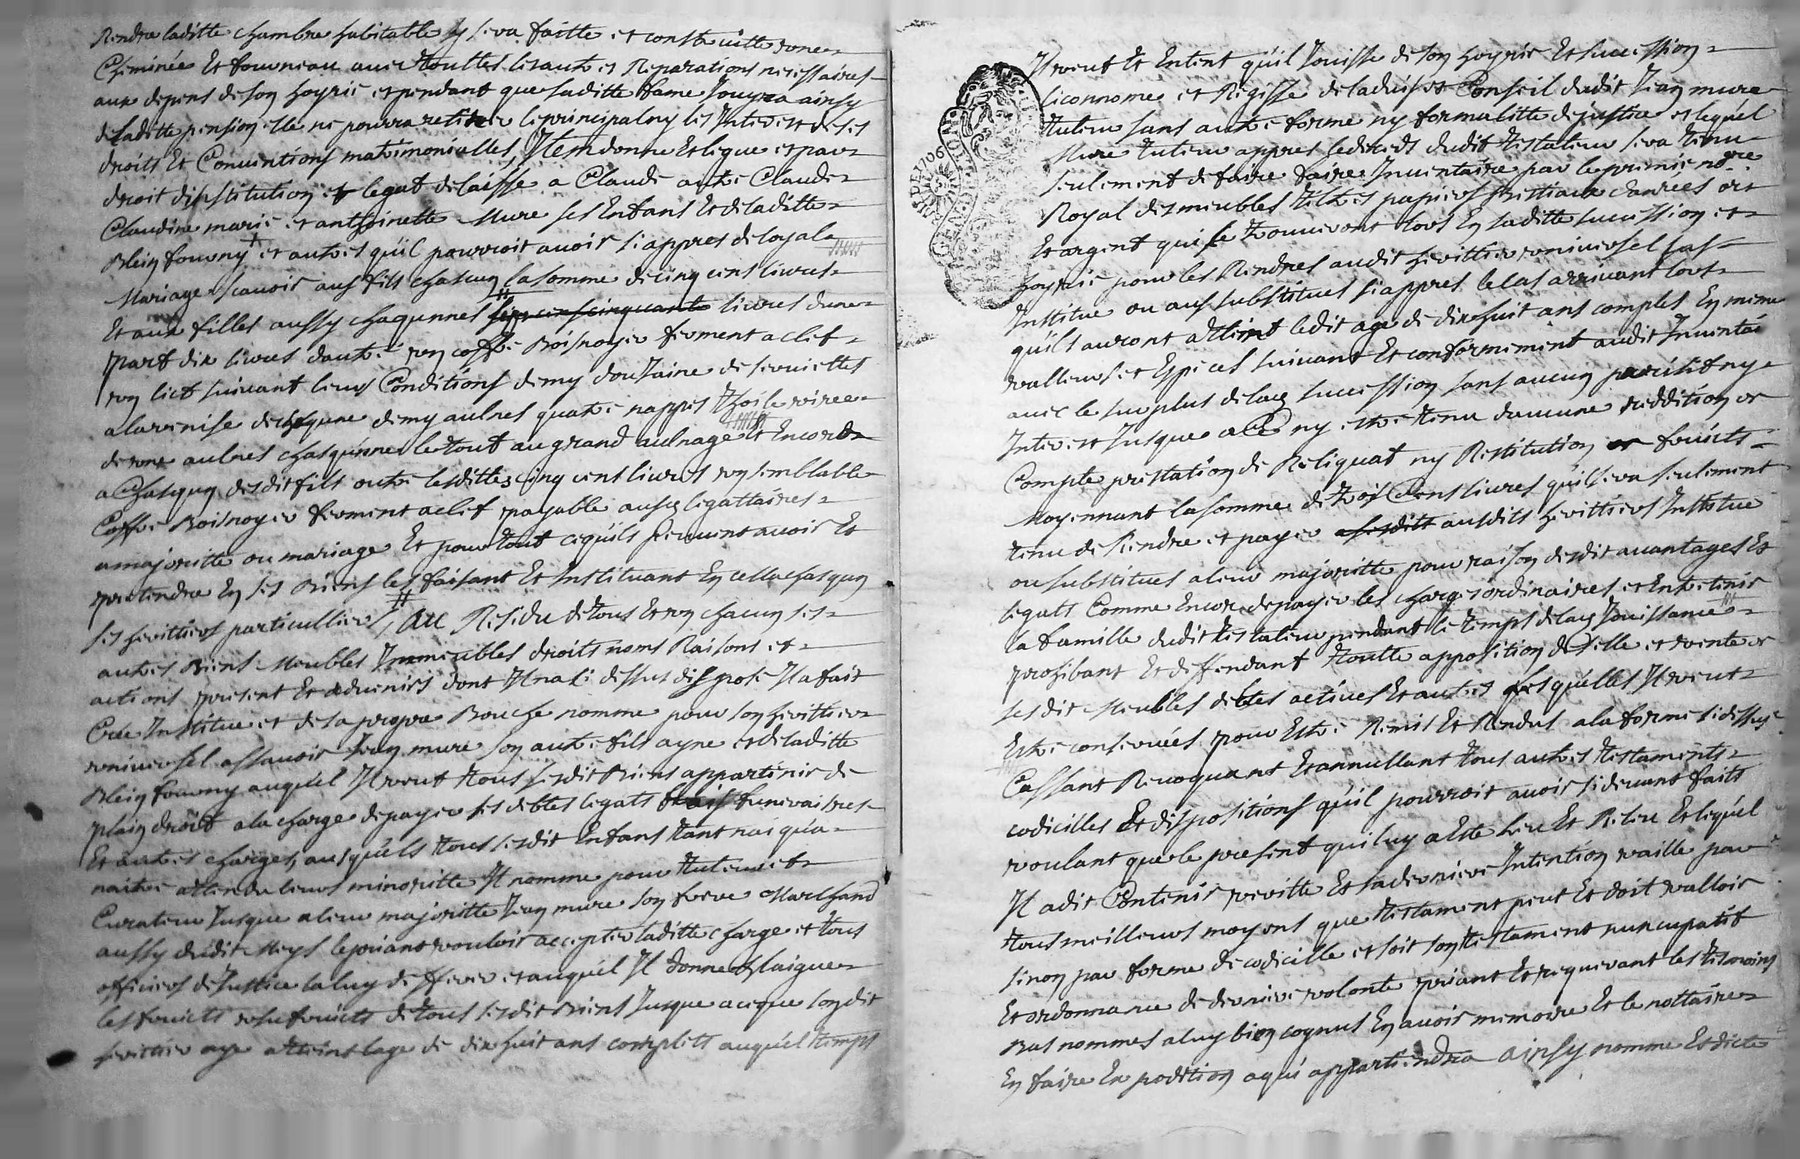 Rendre laditte chambre habitable Il sera faitte et construitte une
Cheminée Et fourneau avec touttes les autres Reparations necessaires
aux depens de son hoyrie et pendant que laditte dame Jouyra ainsy
de laditte pension Elle ne pourra retirer le principal ny les Interest de ses
droits Et Conventions matrimonialles, Item donne Et legue et par
droit dinstitution et legat delaisse a Claude autre Claude
Claudine marie et anthoinette Mure ses Enfans Et de laditte
Blein fourny + et autres qu'il pourroit avoir si appres de loyal
Mariage scavoir aux fils chascun la somme de cinq cens livres
Et aux filles aussy chaqunnes sept cens cinquante livres dune
part dix livres dautre un coffre Bois noyer ferment a clef
un lict suivant leurs Conditions demy douzaine de serviettes
a la venise de chaqune demy aulnes quatre nappes thoile
de une aulnes chasqunnes le tout au grand aulnage Et Encor
a Chasqun desdit fils outre lesdittes cinq cens livres un semblable
Coffre Bois noyer ferment a clef payable ausd legattaires
a majoritte ou mariage Et pour tout ce qu'ils peuvent avoir Et
pretendre En ses Biens les faisant Et Instituant En cella chasqun
ses herittiers particulliers, Au Residu de tous Et un chacun ses
autres Biens Meubles Immeubles droits noms Raisons et
actions present Et advenirs dont Il na si dessus dispose Il a fait
Cree Institue et de sa propre Bouche nomme pour son herittier
universel assavoir Jean mure son autre fils ayne et de laditte
Blein fourny auquel Il veut tous sesdit Biens appartenir de
plain droit a la charge de payer ses debtes legats frais funeraires
Et autres charges, ausquels tous sesdit Enfans tant nai qua
naitre attendu leurs minoritte Il nomme pour tuteur et
Curateur Jusque a leur majoritte Jean mure son frere Marchand
aussy dudit Meys le priant vouloir accepter laditte charge et tous
officiers de Justice la luy defferer et auquel Il donne Et laigue
les fruicts usufruicts de tous sesdit Biens Jusque a ce que sondit
herittier aye atteint lage de dix huit ans complets auquel temps
Il veut Et Entent qu'il Jouisse de son hoyrie Et succession
liconnome et Regisse de ladvis et Conseil dudit Jean mure
tuteur sans autre forme ny formalitte de justice et lequel
Mure tuteur appres le deceds dudit testateur sera tenu
seulement de faire faire Inventaire par le premier nore
Royal des meubles tiltres papiers bestiaux danrees or
Et argent qui se trouveront lors En laditte succession et
hoyrie pour les Rendres audit herittier universel sus
Institue ou aux substitues si appres le cas arrivant lors
quils auront atteint ledit age de dix huit ans comples En mime
valleurs et Especes suivant Et conformement audit Inventai
avec le surplus de lad succession sans aucun ny
Interest Jusque a Ce ny estre tenu daucune reddition de
Compte prestation de Reliquat ny Restitution fruicts
Moyennant la somme de trois Cens livres quil sera seulement
tenu de Rendre et payer ausdits herittiers Institue
ou substitues a leur majoritte pour raison desdit avantages Et
legats Comme Encor de payer les charges ordinaires et Entretenir
la famille dudit testateur pendant le temps de lad Jouissance
prohibant Et deffendant toutte apposition de selle et vente de
sesdit Meubles debtes actives Et autres lesquelles Il veut
Estre conservées pour Estre Remis Et Rendus a la forme si dessus
Cassant Revoquant Et annullant tous autres testaments
codicilles Et dispositions qu'il pourroit avoir si devant faits
voulant que le present qui luy a Este leu Et Releu Et lequel
Il a dit Contenir veritte Et sa derniere Intention vaille par
tous meilleurs moyens que testament peut Et doit valloir
sinon par forme de codicille et soit son testament nuncupatif
Et ordonnance de derniere volonte priant Et requerant les tesmoins
Bas nommes a luy bien cognus En avoir memoire Et le nottaire
En faire Expedition a qui appartiendra ainsy nomme Et dicte